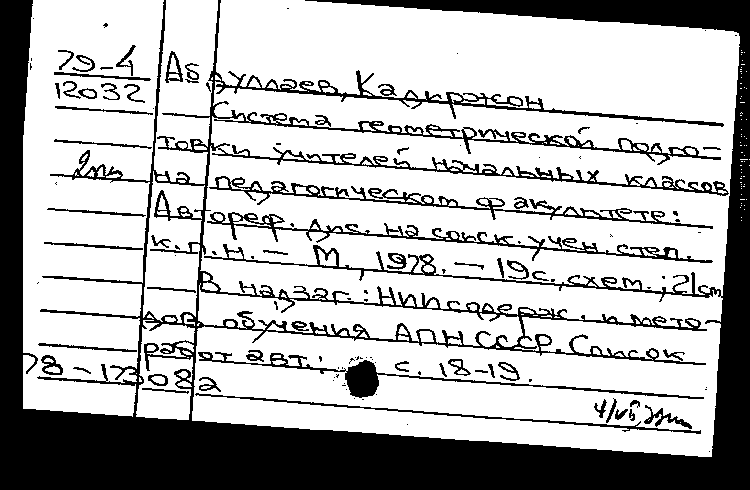 79-4
12032
Абдуллаев, Кадиржон.
Система геометрической подго-
товки учителей начальных классов
на педагогическом факультете:
Автореф. дис. на соиск. учен. степ.
к.п.н. — М., 1978. — 19с., схем.; 21cm
В надзаг.: НИИ содерж. и мето-
дов обучения АПН СССР. Список
работ авт.: с. 18-19.
78-173082